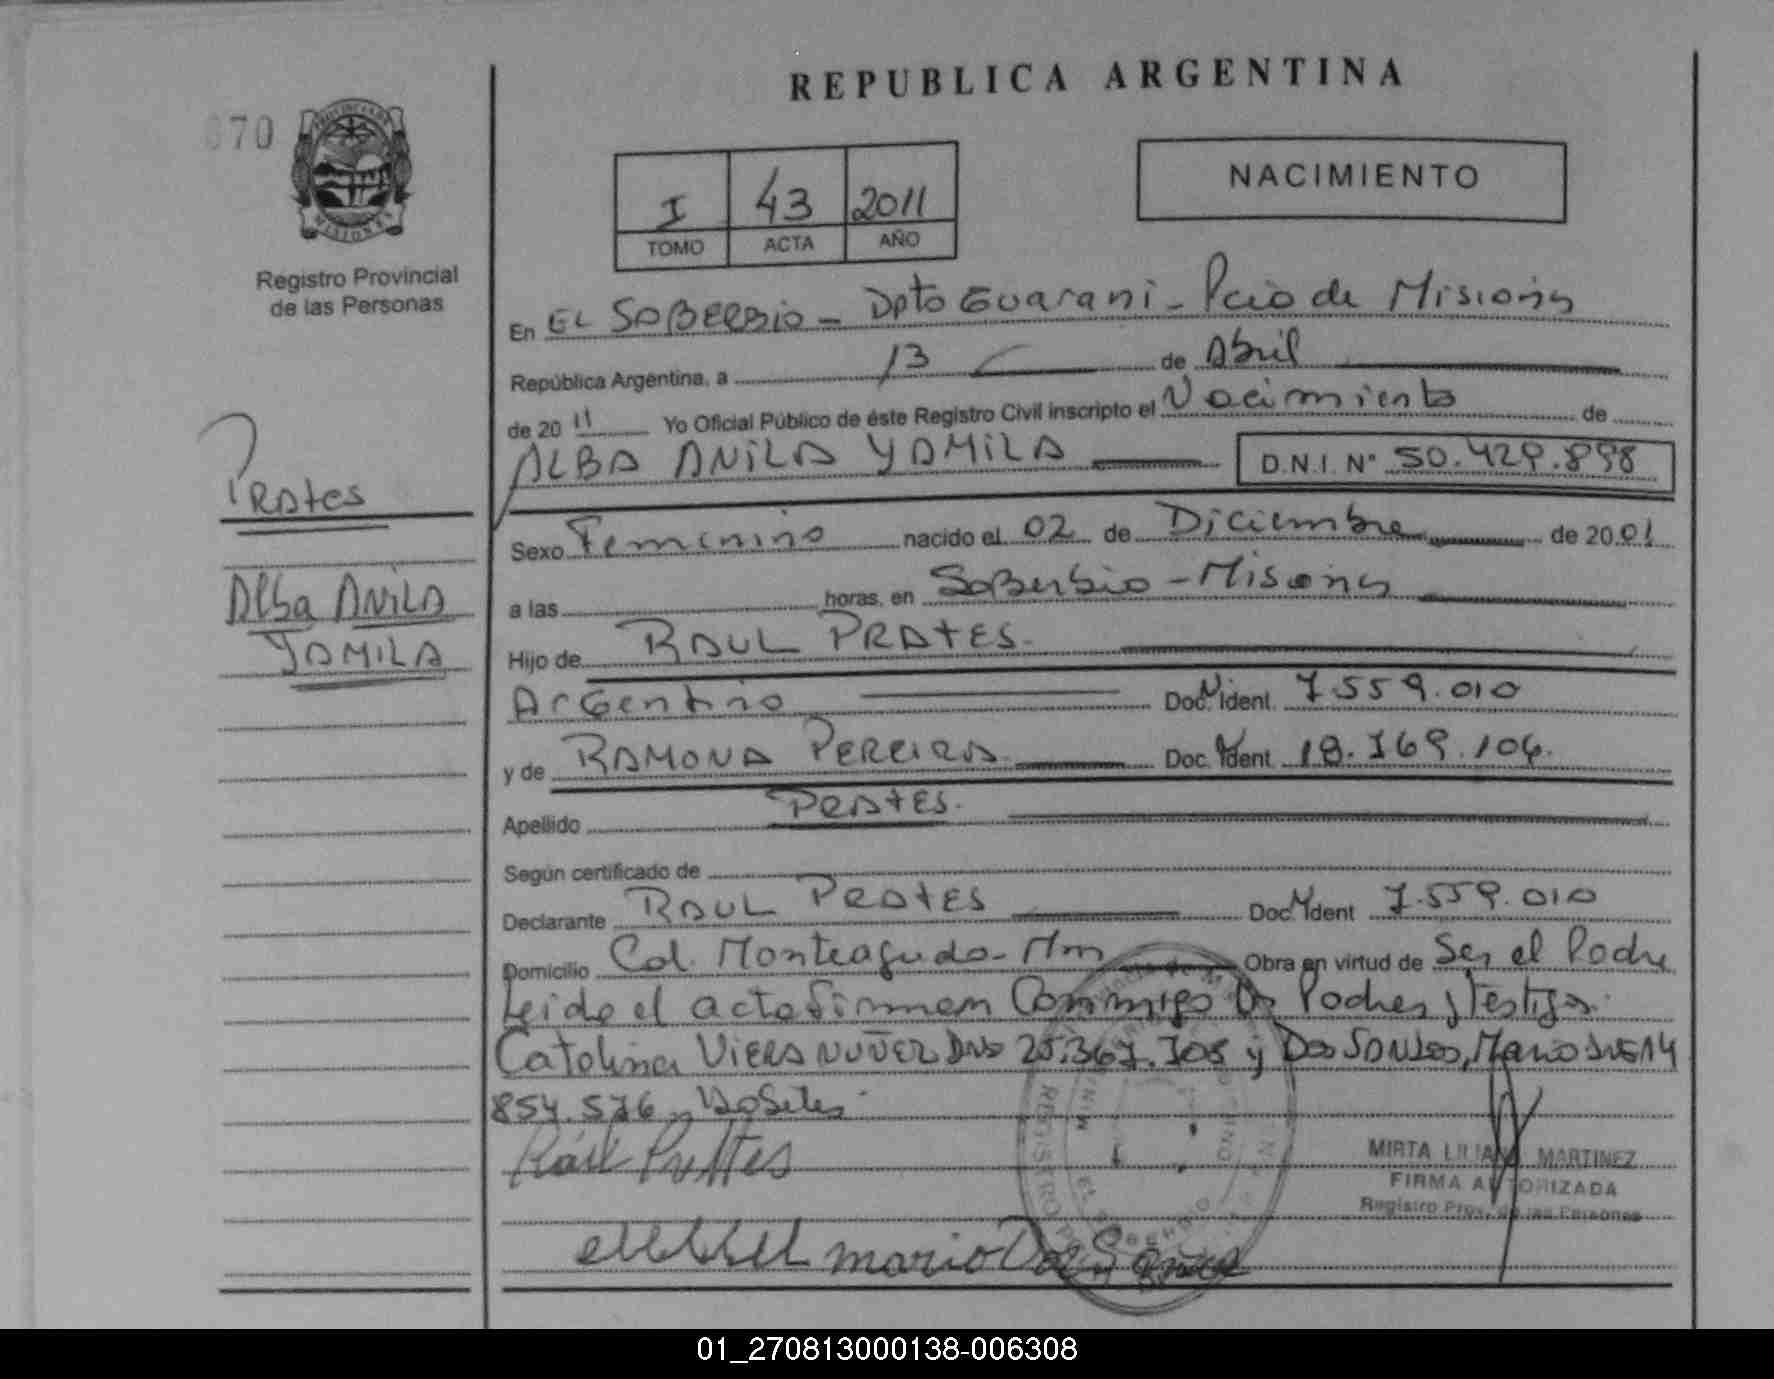 REPUBLICA ARGENTINA
070
PROVINCIA DE
MISIONES
Registro Provincial
de las Personas
I 43 2011
TOMO ACTA AÑO
NACIMIENTO
En EL SOBERBIO - Dpto Guarani - Pcia de Misiones
República Argentina, a 13 de Abril
de 2011 Yo Oficial Público de éste Registro Civil inscripto el Nacimiento de
ALBA ANILA YAMILA D.N.I. N° 50.429.898
Prates
Alba ANILA
YAMILA
Sexo Femenino nacido el 02 de Diciembre de 2001
a las horas, en Soberbio - Misiones
Hijo de RAUL PRATES.
Argentino Doc. Ident. 7.559.010
y de RAMONA PEREIRA Doc. Ident. 18.769.104.
Apellido PRATES.
Según certificado de
Declarante RAUL PRATES Doc. Ident 7.559.010
Domicilio Col. Monteagudo - Mnes Obra en virtud de Ser el Padre
Leida el acta firman Conmigo los Padres y Testigos:
Catalina VIERA NUÑEZ DNI 25.367.708 y Dos SANTOS, Mario DNI 14
854.576
Raúl Prattes
MIRTA LILIANA MARTINEZ
FIRMA AUTORIZADA
Registro Prov. de las Personas
mario Dos Santos
01_270813000138-006308